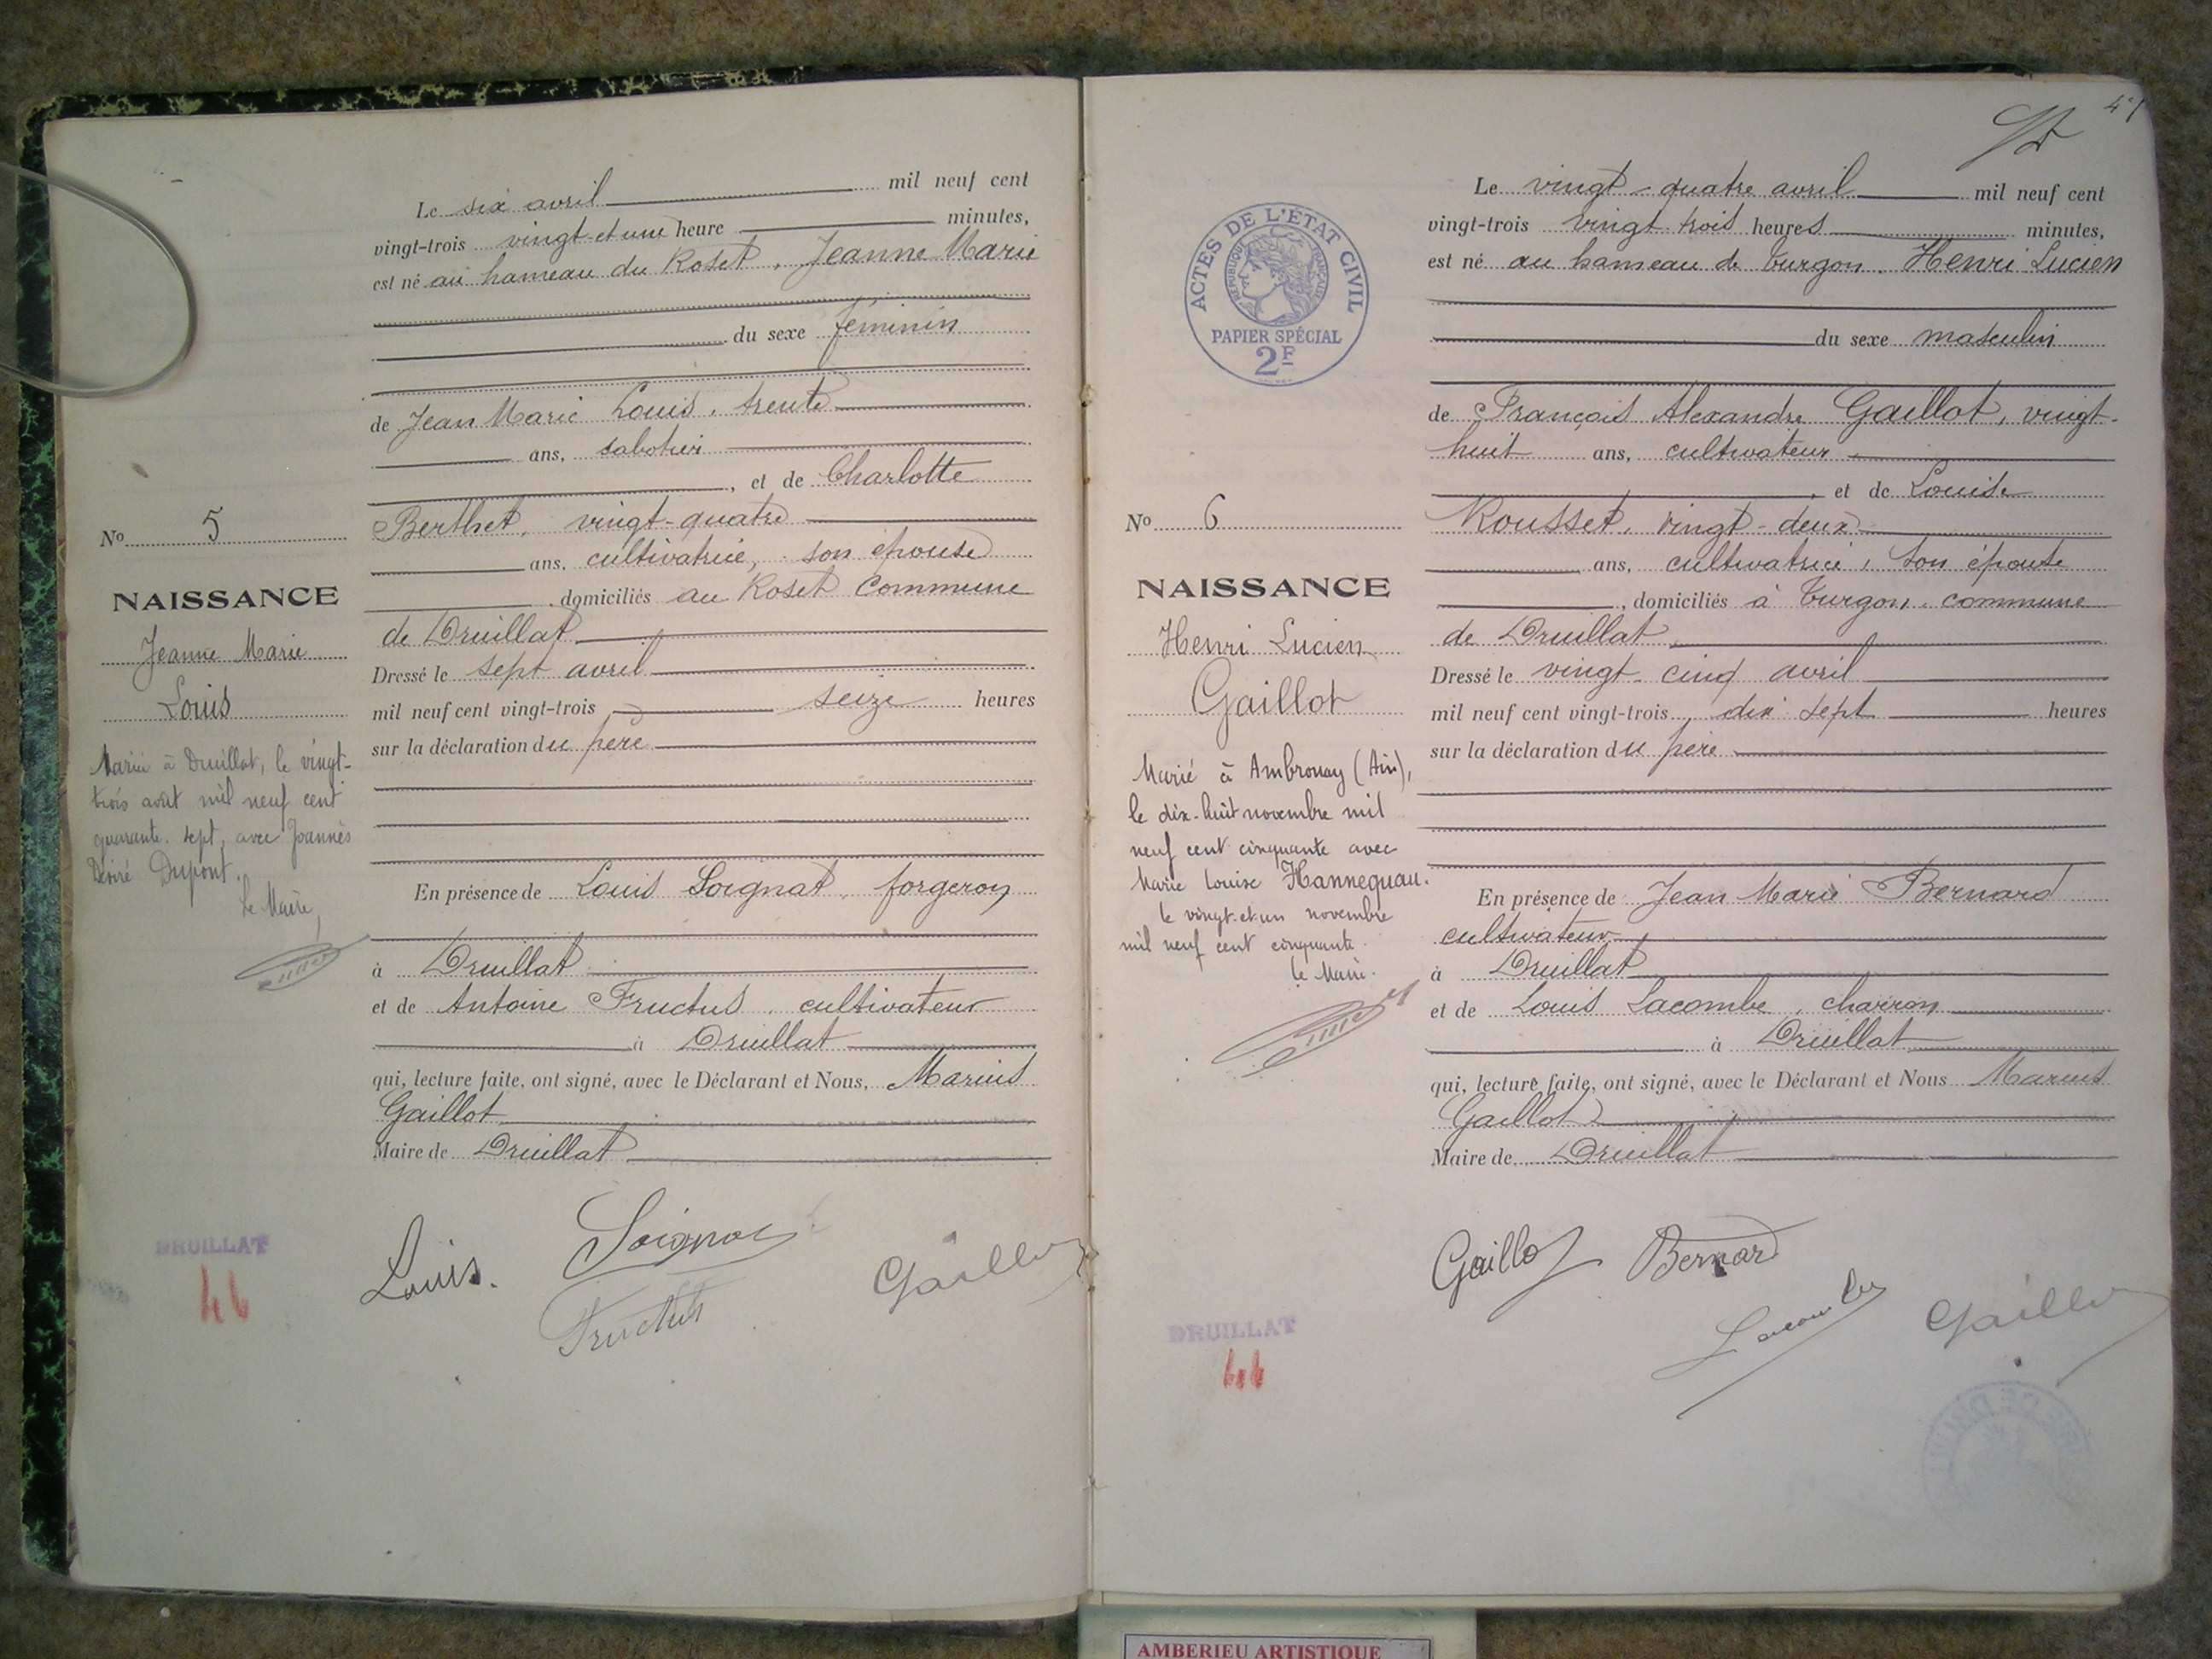 Le six avril mil neuf cent
vingt-trois vingt-et une heure minutes,
est né au hameau du Roset, Jeanne Marie
du sexe féminin
de Jean Marie Louis, trente
ans, sabotier
, et de Charlotte
Berthet, vingt-quatre
ans, cultivatrice, son épouse
, domiciliés au Roset commune
de Druillat
Dressé le sept avril
mil neuf cent vingt-trois, seize heures
sur la déclaration du père
En présence de Louis Soignat, forgeron
à Druillat
et de Antoine Fructus, cultivateur
à Druillat
qui, lecture faite, ont signé, avec le Déclarant et Nous, Marius
Gaillot
Maire de Druillat
No 5
NAISSANCE
Jeanne Marie
Louis
Mariée à Druillat, le vingt-
trois août mil neuf cent
quarante-sept, avec Joannès
Désiré Dupont.
Le Maire,
Louis.
Soignat
Fructus
Gaillot
DRUILLAT
47
Le vingt-quatre avril mil neuf cent
vingt-trois vingt trois heures minutes,
est né au hameau de Turgon, Henri Lucien
du sexe masculin
de François Alexandre Gaillot, vingt-
huit ans, cultivateur
, et de Louise
Rousset, vingt-deux
ans, cultivatrice, son épouse
, domiciliés à Turgon, commune
de Druillat
Dressé le vingt-cinq avril
mil neuf cent vingt-trois, dix sept heures
sur la déclaration du père
En présence de Jean Marie Bernard
cultivateur
à Druillat
et de Louis Lacombe, charron
à Druillat
qui, lecture faite, ont signé, avec le Déclarant et Nous Marius
Gaillot
Maire de Druillat
ACTES DE L'ÉTAT CIVIL
RÉPUBLIQUE FRANÇAISE
PAPIER SPÉCIAL
2F
No 6
NAISSANCE
Henri Lucien
Gaillot
Marié à Ambronay (Ain),
le dix-huit novembre mil
neuf cent cinquante avec
Marie Louise Hannequau.
le vingt-et-un novembre
mil neuf cent cinquante.
Le Maire.
Gaillot
Bernard
Lacombe
Gaillot
DRUILLAT
AMBERIEU ARTISTIQUE